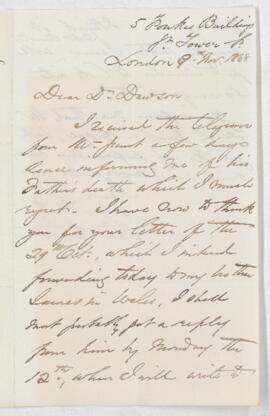 5 Fowkes Buildings
Gt Tower St
London 9th Nov. 1888
Dear Dr Dawson
I received the telegram
from Mr. Grant a few days
since informing me of his
Father's death which I much
regret. I have now to thank
you for your letter of the
29th Oct., which I intend
forwarding today to my brother
James in Wales, I shall
most probably get a reply
from him by Monday the
12th, when I will write to